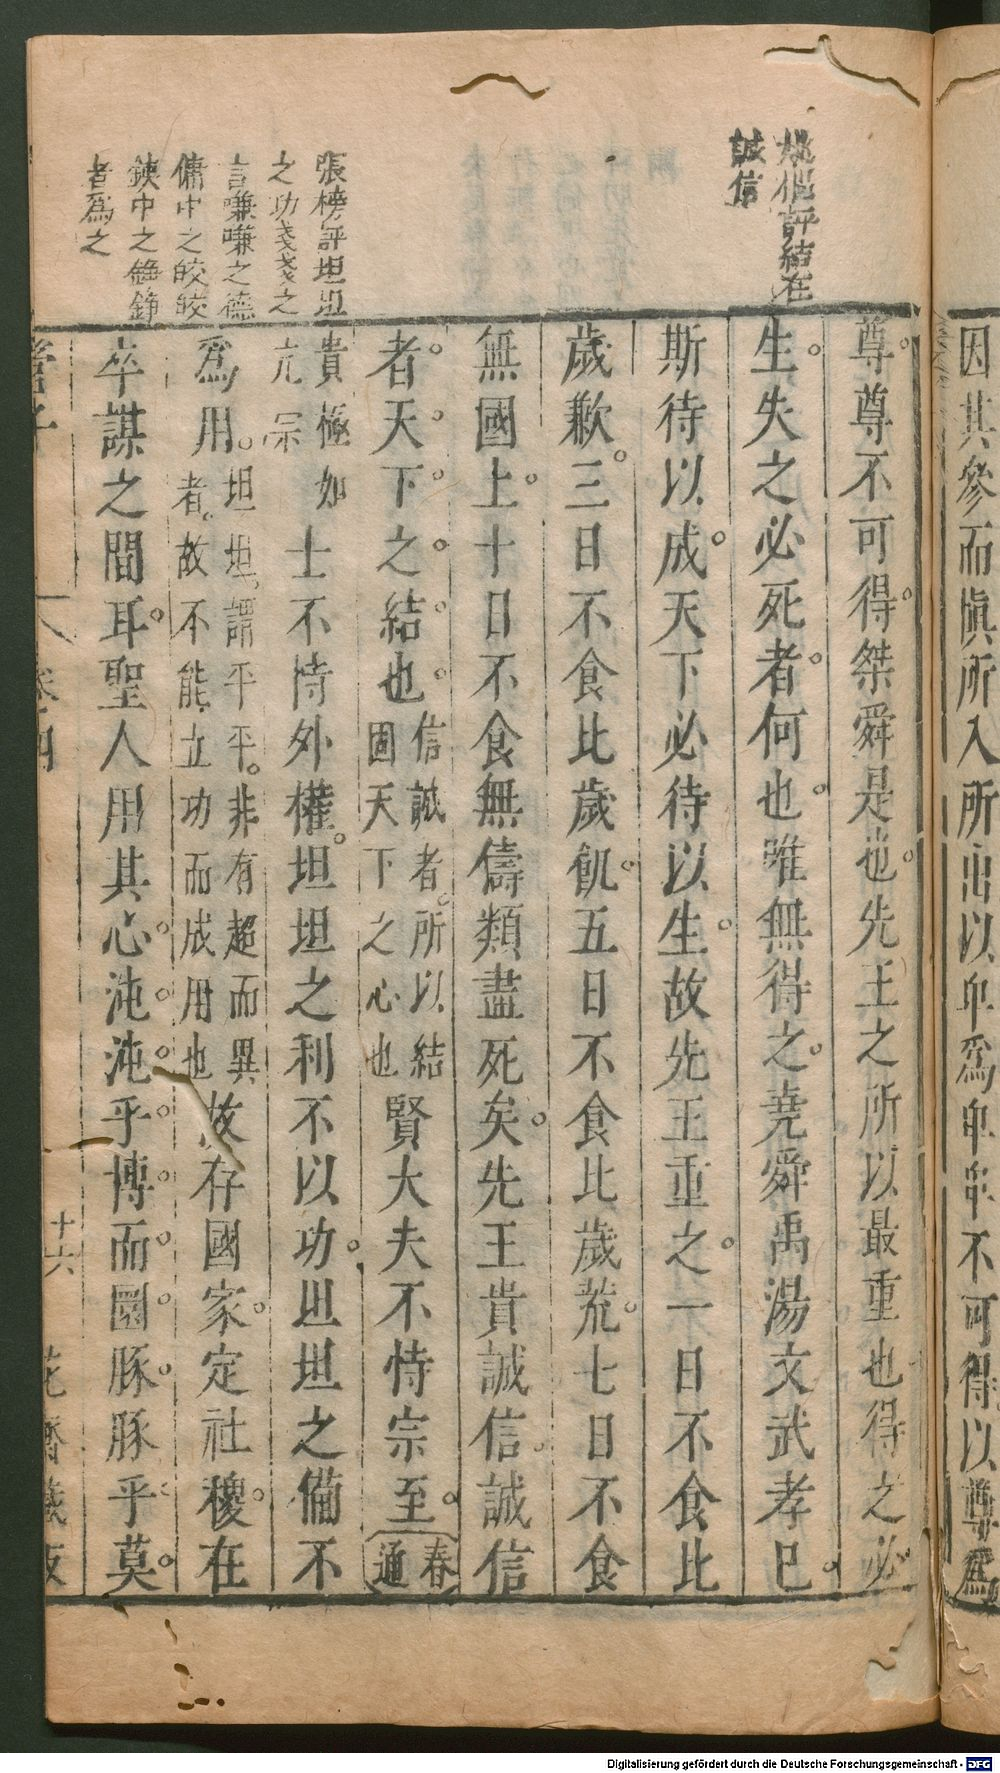 因其參而慎所入所出以卑爲卑卑不可得以尊爲
姚樞評結在
誠信
尊尊不可得桀舜是也先王之所以最重也得之必
生失之必死者何也唯無得之堯舜禹湯文武孝巳
斯待以成天下必待以生故先王重之一日不食比
歲歉三日不食比歲飢五日不食比歲荒七日不食
無國土十日不食無儔類盡死矣先王貴誠信誠信
者天下之結也信誠者所以結固天下之心也賢大夫不恃宗至春通
張榜評坦坦
之功戔戔之
言嗛嗛之德
傭中之皎皎
鐵中之錚錚
者爲之
貴極如亢宗士不恃外權坦坦之利不以功坦坦之備不
爲用坦坦謂平平非有超而異者故不能立功而成用也故存國家定社稷在
卒謀之間耳聖人用其心沌沌乎博而圜豚豚乎莫
管子
卷四
十六
花齋藏板
Digitalisierung gefördert durch die Deutsche Forschungsgemeinschaft - DFG